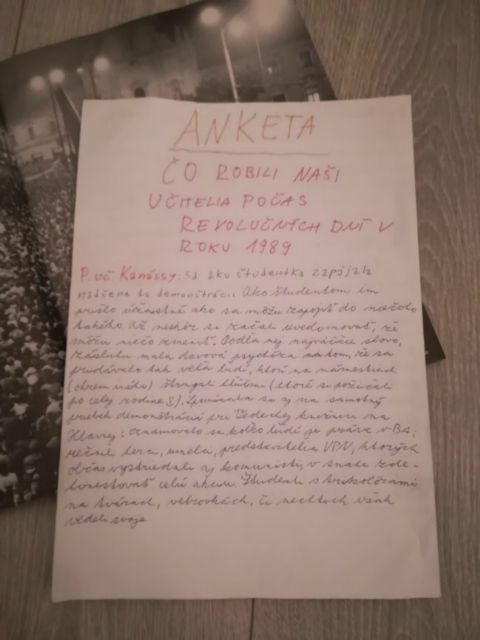 ANKETA
ČO ROBILI NAŠI
UČITELIA POČAS
REVOLUČNÝCH DNÍ V
ROKU 1989
P. uč Kanássy: sa ako študentka zapájala
nadšene do demonštrácií Ako študentom im
prišlo úžasné ako sa môžu zapojiť do niečoho
takého Až neskôr si začali uvedomovať, že
môžu niečo zmeniť. Podľa nej najväčšie slovo,
zásluhu mala davová psychóza na tom, že sa
pridávalo tak veľa ľudí, ktorí na námestiach
(okrem iného) štrngali kľúčmi (ktoré si požičali
po celej rodine :). Spomína si aj na samotný
priebeh demonštrácií pri
Hlavnej: oznamovalo sa koľko ľudí je práve v BA,
rečnili herci, umelci, predstavitelia VPN, ktorých
občas vystriedali aj komunisti, v snahe zde-
honestovať celú akciu Študenti s trikolórami
na tvárach, vetrovkách, či nechtoch však
vedeli svoje